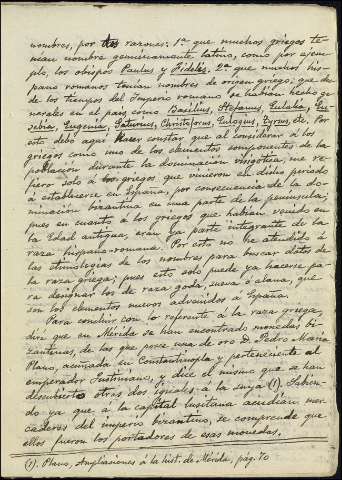 nombres, por tres razones: 1ª que muchos griegos te-
nian nombre genuinamente latino, como por ejem-
plo, los obispos Paulus y Fidelis. 2ª que muchos his-
pano romanos tenian nombres de origen griego; que des-
de los tiempos del Imperio romano se habian hecho ge-
nerales en el país como Basilius, Stefanus, Eulalia, Eu-
sebia, Eugenia, Saturnus, Christoforus, Eulogius, Zyrus, etc. Por
esto debo aquí hacer constar que al considerar á los
griegos como uno de los elementos componentes de la
poblacion durante la dominacion visigótica, me re-
fiero solo á los griegos que vinieron en dicho periodo
á establecerse en España, por consecuencia de la do-
minacion bizantina en una parte de la peninsula;
pues en cuanto á los griegos que habian venido en
la Edad antigua, eran ya parte integrante de la
raza hispano-romana. Por esto no he atendido á
las etimologias de los nombres para buscar datos de
la raza griega; pues esto solo puede ya hacerse pa-
ra designar los de raza goda, sueva ó alana, que
son los elementos nuevos advenidos á España.
Para concluir con lo referente á la raza griega,
diré que en Mérida se han encontrado monedas bi-
zantinas, de las que posee una de oro D. Pedro Maria
Plano, acuñada en Constantinopla y perteneciente al
emperador Justiniano, y dice el mismo que se han
descubierto otras dos iguales á la suya (1). Sabien-
do ya que á la capital lusitana acudian mer-
caderes del imperio bizantino, se comprende que
ellos fueron los portadores de esas monedas.
(1). Plano, Ampliaciones á la Hist. de Mérida, pág. 70